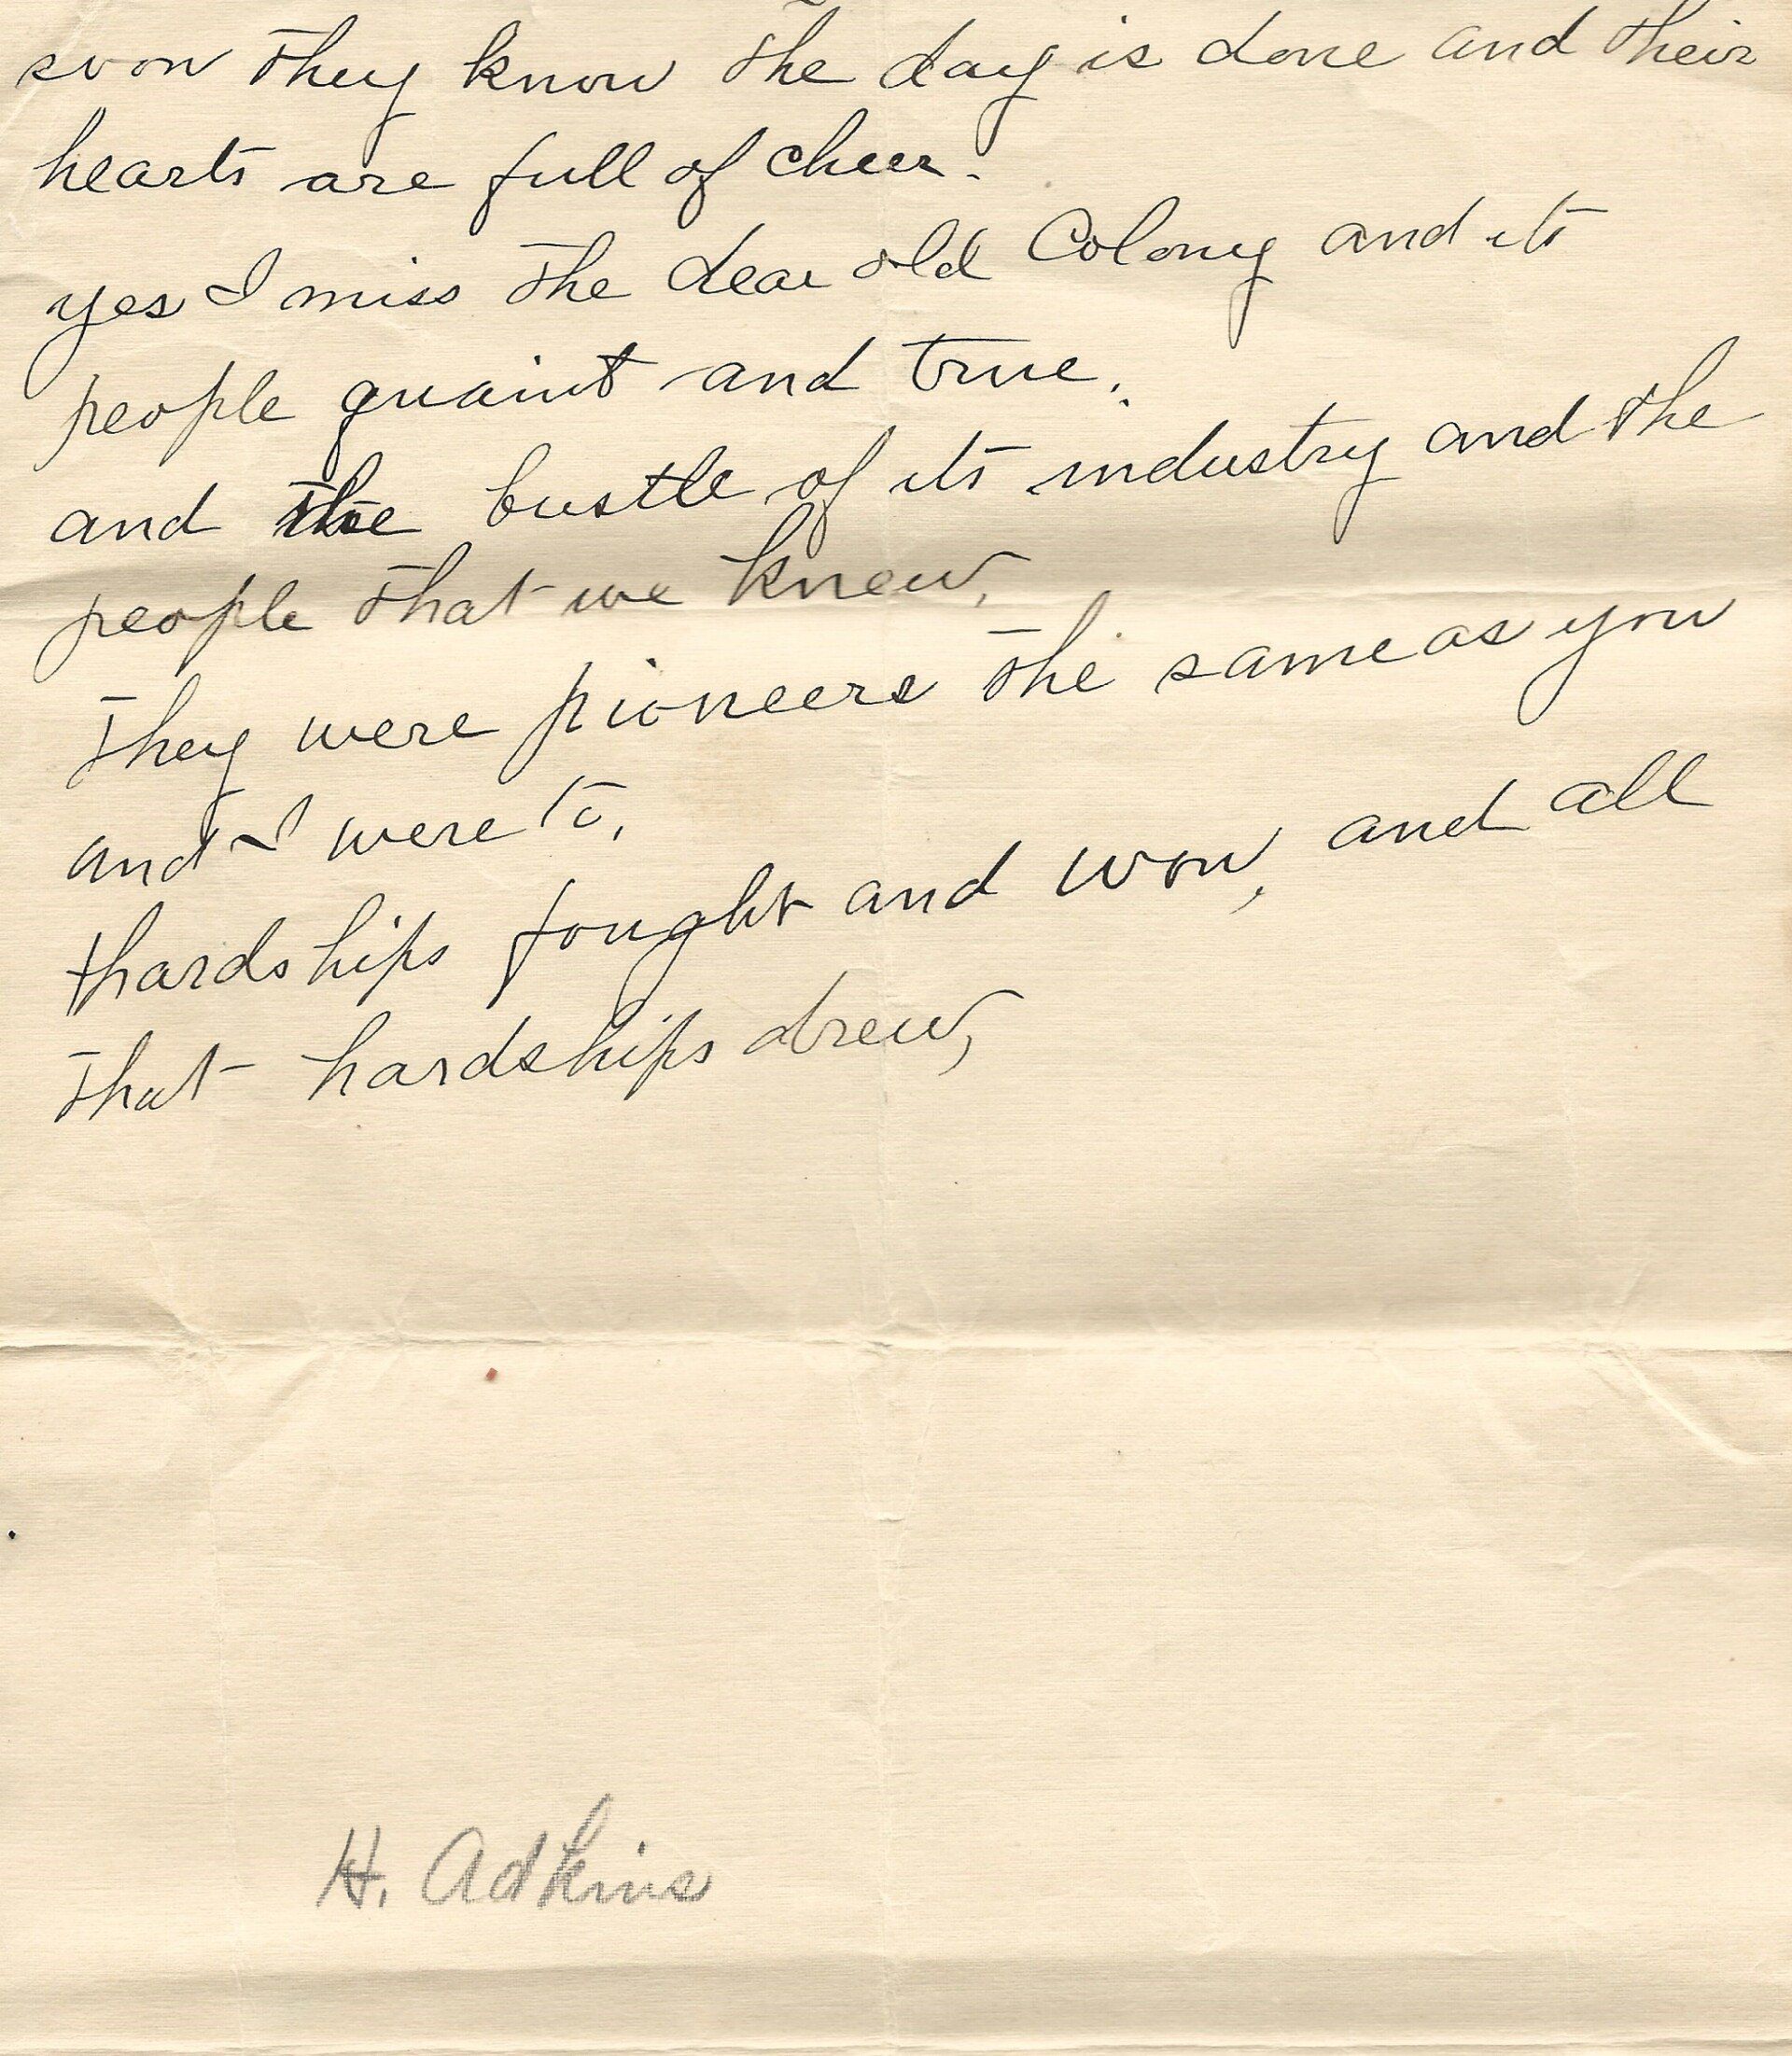 soon they know the day is done and their
hearts are full of cheer.
yes I miss the dear old Colony and its
people quaint and true.
and the bustle of its industry and the
people that we knew,
They were pioneers the same as you
and I were to,
hardships fought and won, and all
that hardships drew,
H. Adkins